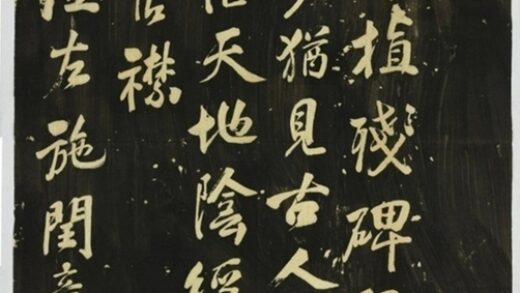 植殘碑
猶見古人
天地陰經
襟
左施閏章